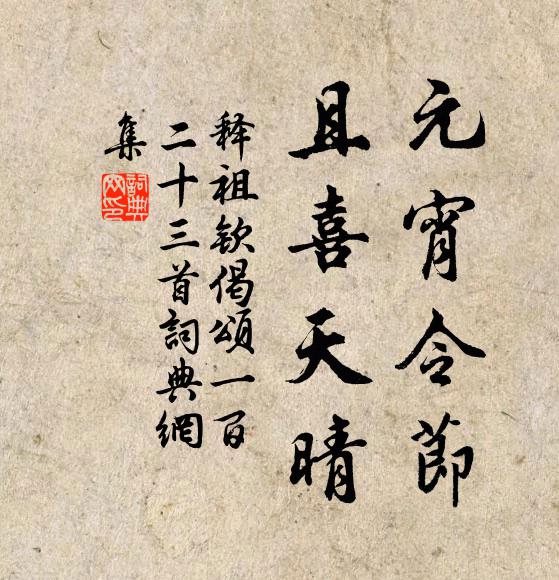 元宵令節
且喜天晴
释祖钦偈頌一百
二十三首詞典網
集
詞典網印